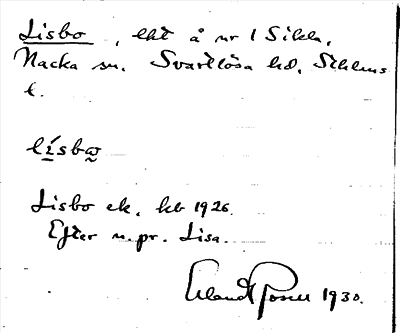 Lisbo, lht å nr 1 Sikla,
Nacka sn. Svartlösa hd, Sthlms
l.
lísbω
Lisbo ek. kb 1926.
Efter n.pr. Lisa.
Erland Rosell 1930.